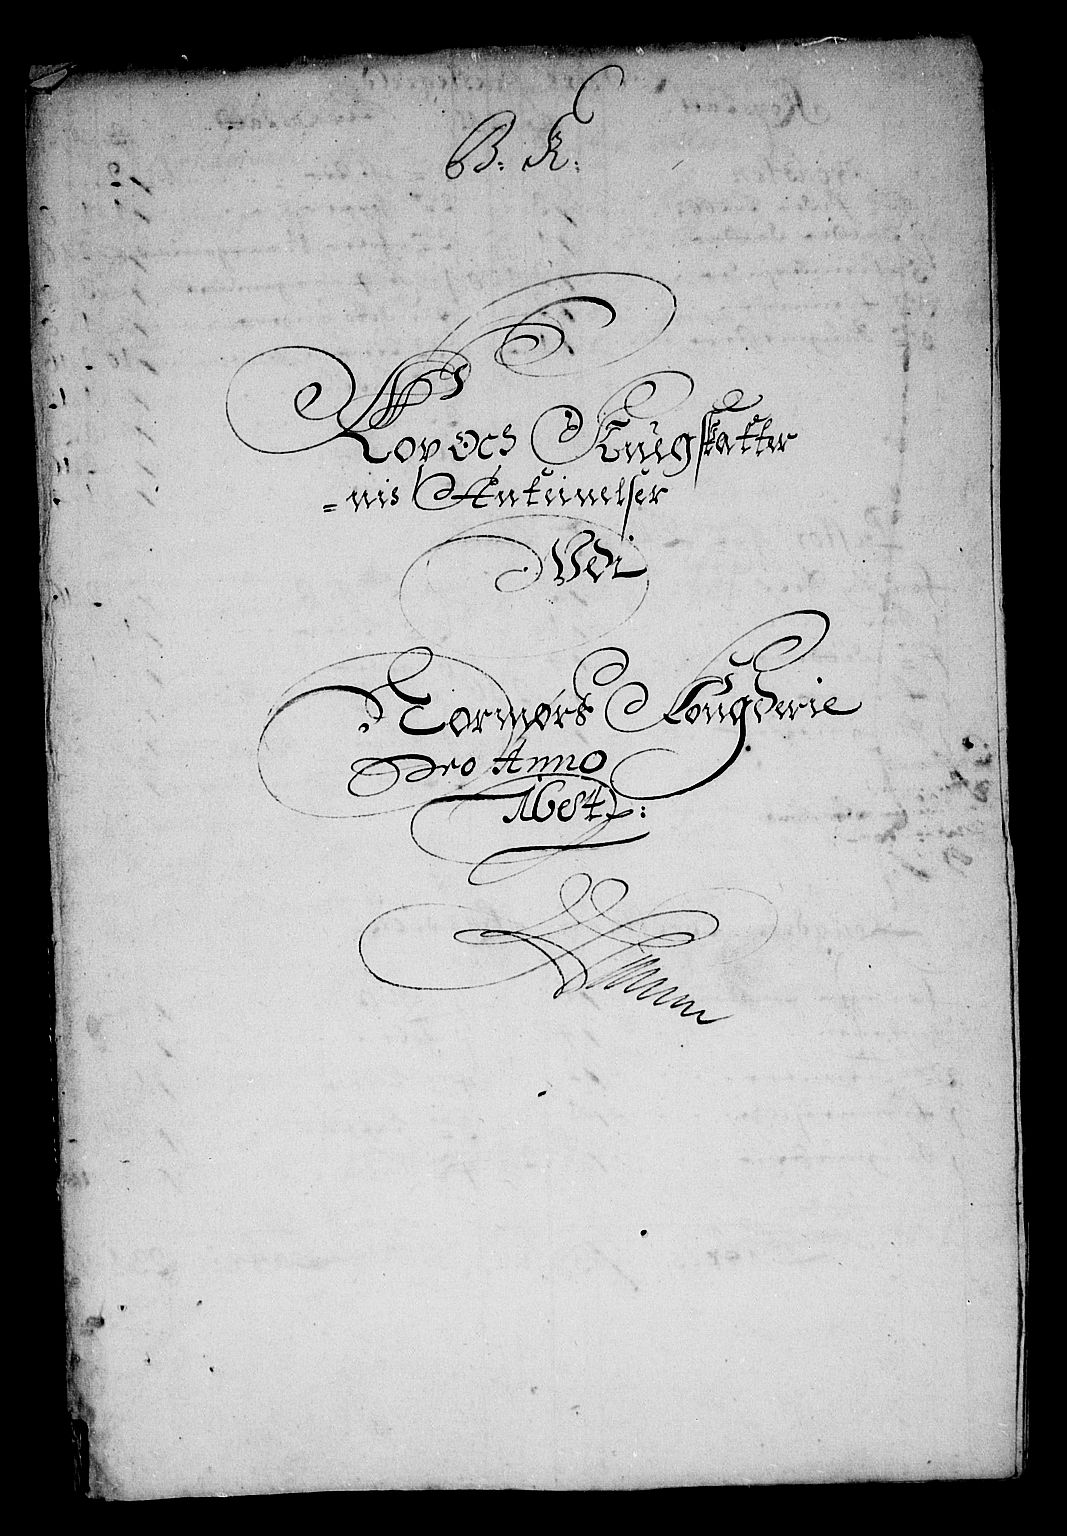 B: K:
Kop och Quegskatter
=nis Antegnelser
Udi
Normørs Fougderie
Pro Anno
1684: